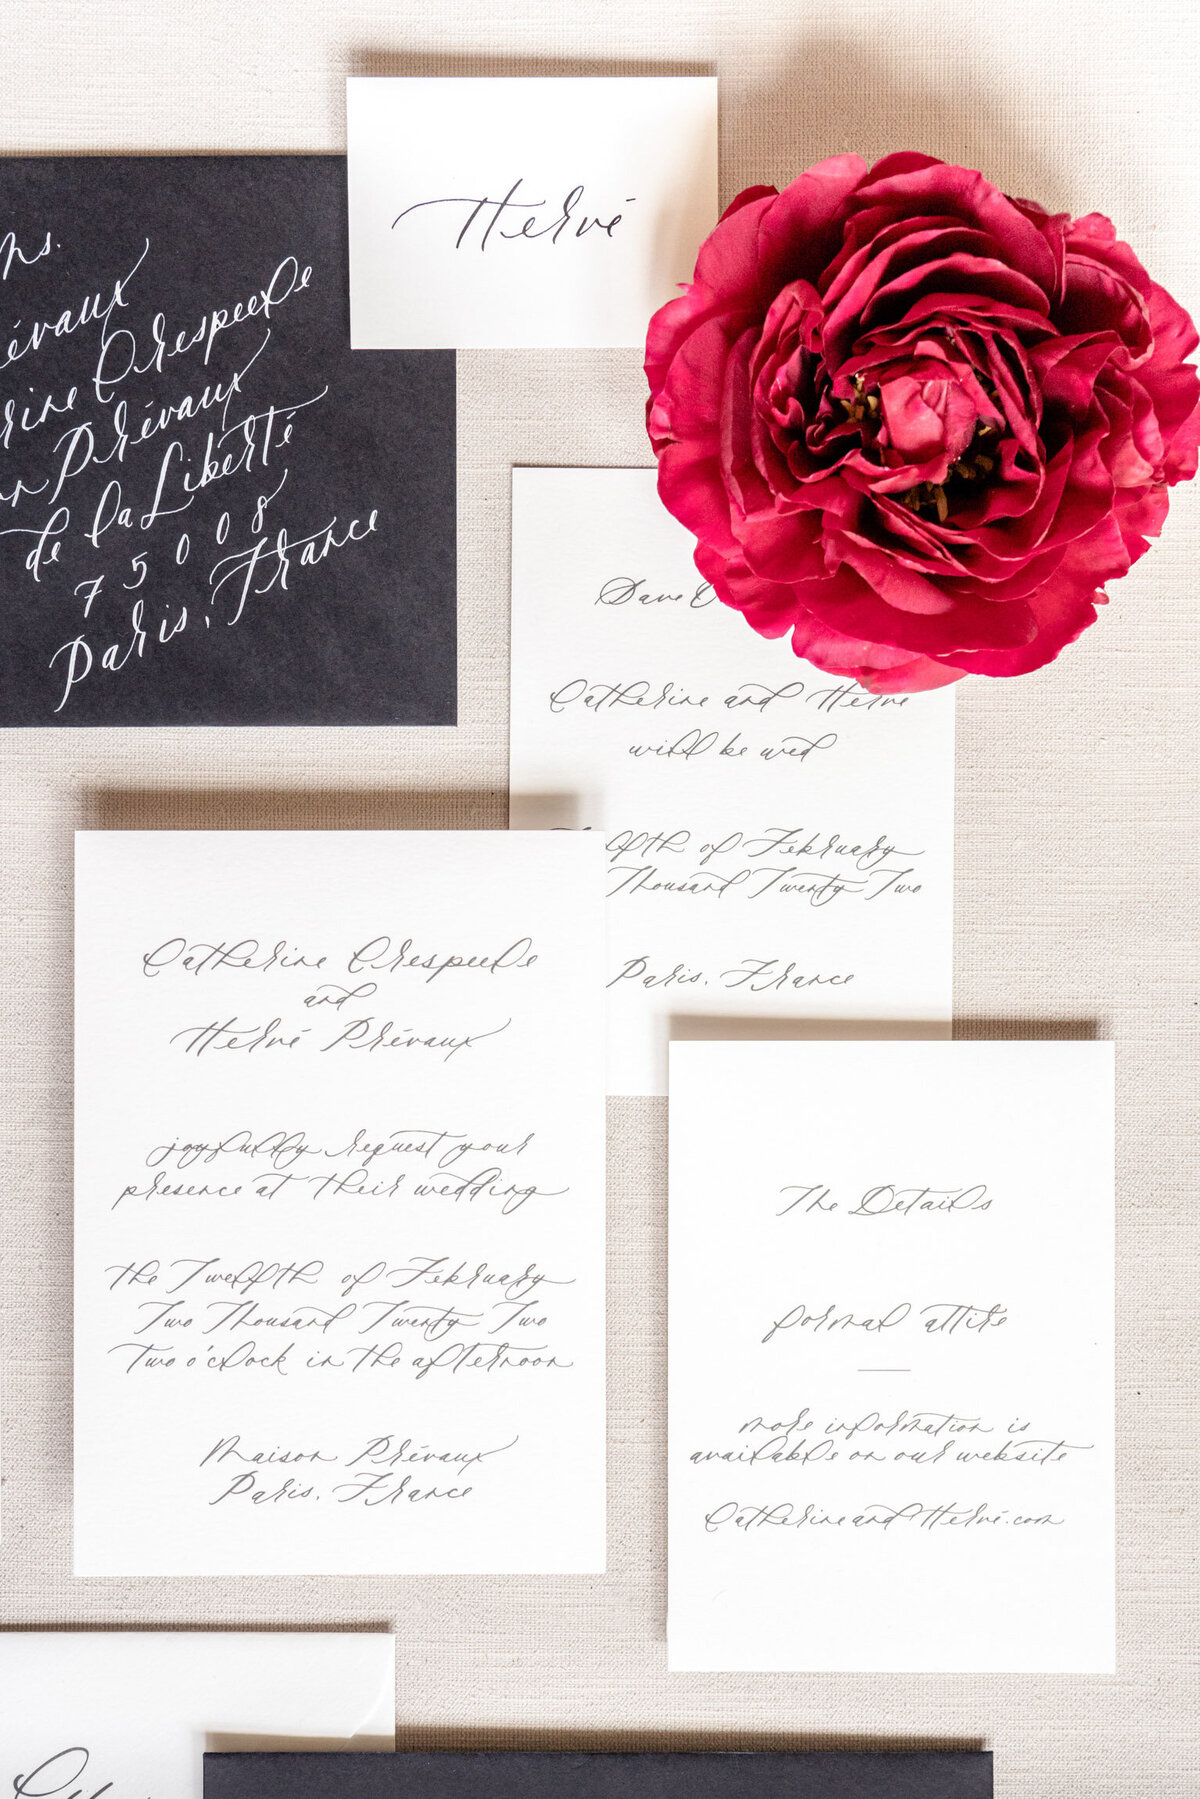 Hervé
révaux
Crespeele
Prévaux
de la Liberté
75008
Paris, France
Save
Catherine and Hervé
will be wed
of February
Thousand Twenty Two
Paris, France
Catherine Crespeele
and
Hervé Prévaux
joyfully request your
presence at their wedding
the Twelfth of February
Two Thousand Twenty Two
Two o'clock in the afternoon
Maison Prévaux
Paris, France
The Details
formal attire
more information is
available on our website
CatherineandHervé.com